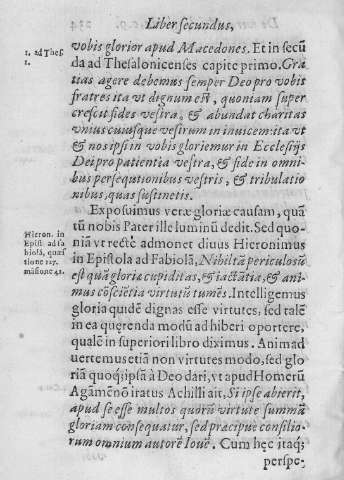 Liber secundus,
1. ad Thes.
1.
vobis glorior apud Macedones. Et in secū
da ad Thesalonicenses capite primo. Gra
tias agere debemus semper Deo pro vobis
fratres ita vt dignum est, quoniam super
crescit fides vestra, & abundat charitas
vnius cuiusque vestrum in inuicem: ita vt
& nos ipsi in vobis gloriemur in Ecclesijs
Dei pro patientia vestra, & fide in omni
bus persequutionibus vestris, & tribulatio
nibus, quas sustinetis.
Exposuimus veræ gloriæ causam, quā
tū nobis Pater ille luminū dedit. Sed quo
niā vt rectè admonet diuus Hieronimus
in Epistola ad Fabiolā, Nihil tā periculosū
est quā gloriæ cupiditas, & iactātia, & ani-
mus cōscietia virtutū tumēs. Intelligemus
gloria quidē dignas esse virtutes, sed talē
in ea quęrenda modū adhiberi oportere,
qualē in superiori libro diximus. Animad
uertemus etiā non virtutes modo, sed glo
riā quoq; ipsā à Deo dari, vt apud Homerū
Agamēnō iratus Achilli ait, Si ipse abierit,
apud se esse multos quorū virtute summā
gloriam consequatur, sed præcipue consilio-
rum omnium autorē Iouē. Cum hęc itaq;
perspe-
Hieron. in
Epist. ad fa
biolā, quæs
tione 127.
māsione 41.